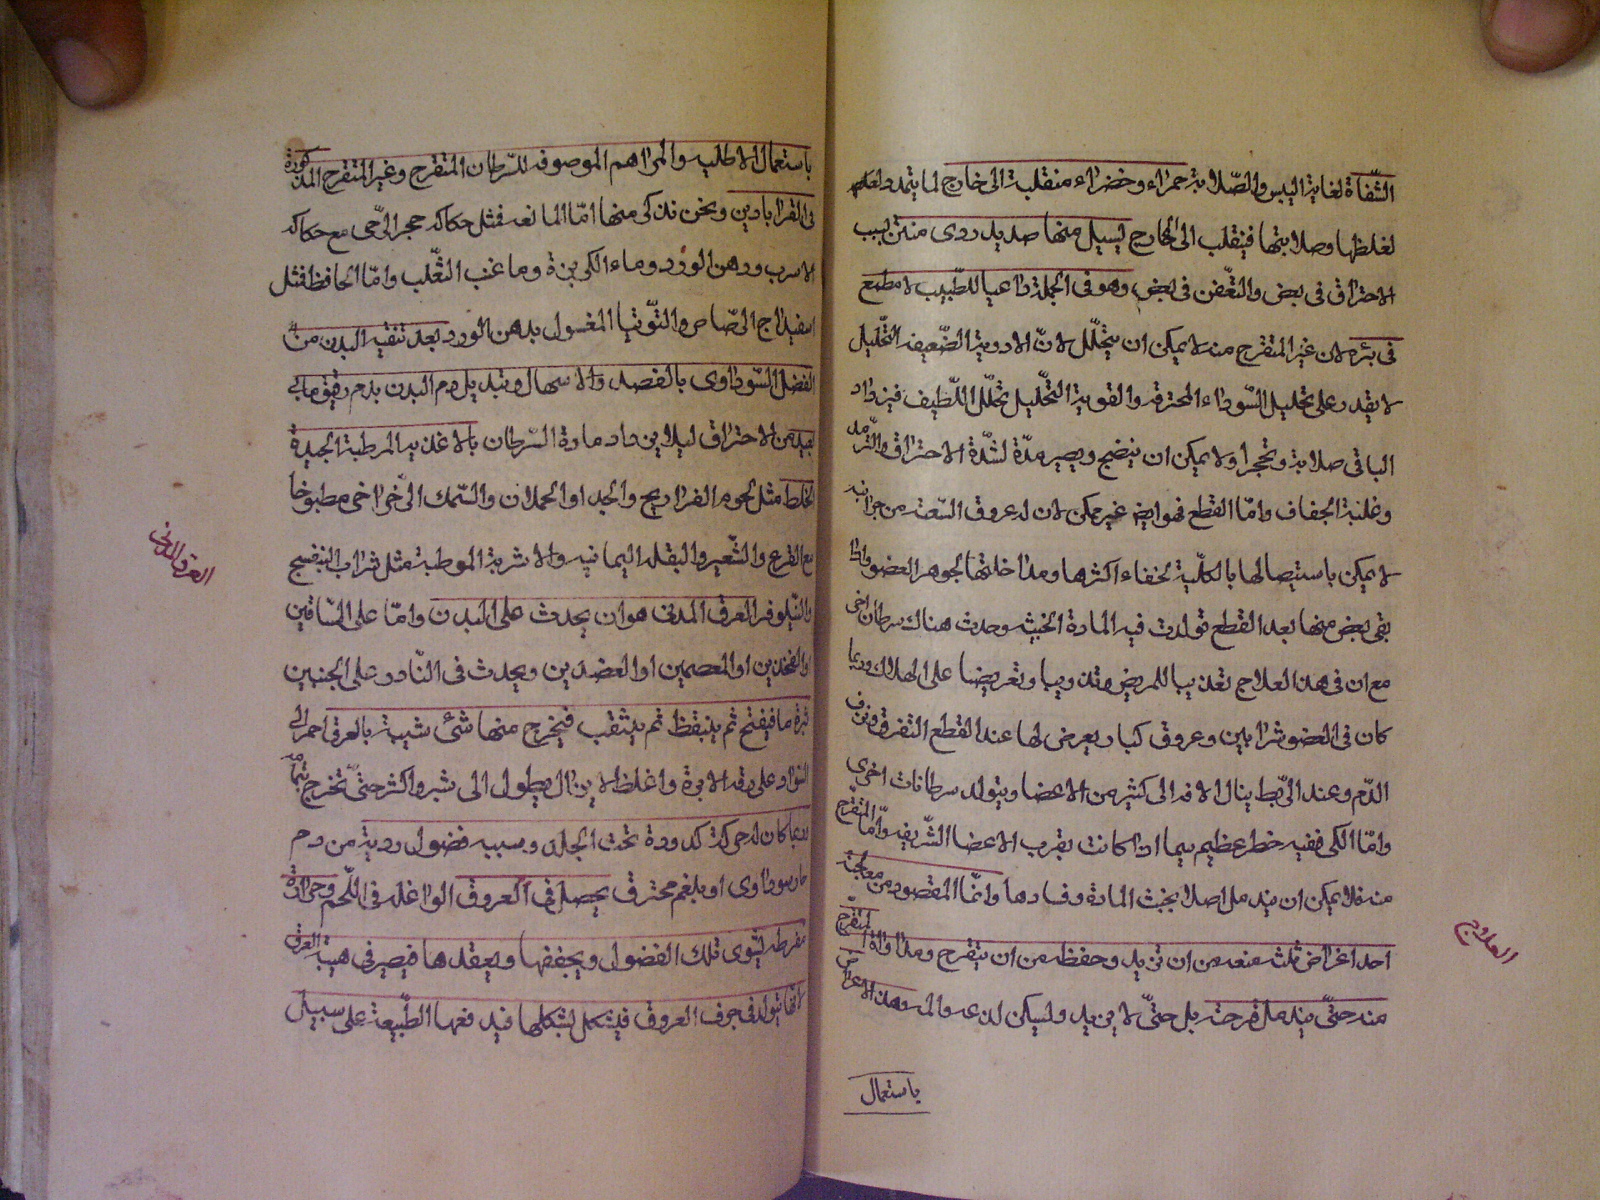 الشفاة لغاية اليبس والصلابة حمراء وخضراء منقلبة الى خارج لما يتمدد
لغلظها وصلابتها فينقلب الى الخارج ليسيل منها صديد ردى منتن بسبب
الاحتراق فى بعض والتعفن فى بعض وهو فى الجملة داء عياء للطبيب لا مطمع
فى برئه لان غير المتقرح منه لا يمكن ان يتحلل لان الادوية الضعيفة التحليل
لا يقدر على تحليل السوداء المحترقة والقوية التحليل تحلل اللطيف فيزداد
الباقى صلابة وتحجرا ولا يمكن ان ينضج ويصير مدة لشدة الاحتراق والترمد
وغلبة الجفاف واما القطع فهو ايضا غير ممكن لان له عروق الشعب من جوانبه
لا يمكن باستيصالها بالكلية لخفاء اكثرها ومداخلتها لجوهر العضو واذا
بقى بعض منها بعد القطع تولدت فيه المادة الخبيثة وحدث هناك سرطان اخر
مع ان فى هذا العلاج تعذيبا للمريض وتعريضا على الهلاك وربما
كان فى العضو شرايين وعروق كبار يعرض لها عند القطع التفرق ونزف
الدم وعند الربط ينال الافة الى كثير من الاعضا ويتولد سرطانات اخرى
واما الكى ففيه خطر عظيم سيما اذا كانت بقرب الاعضا الشريفة واما المتقرح
منه فلا يمكن ان يندمل اصلا لخبث المادة وفسادها وانما المقصود من معالجته
احد اغراض ثلث منعه من ان يزيد وحفظه من ان يتقرح ومداواة المتقرح
منه حتى يندمل قرحته بل حتى لا يزيد وليسكن لذعه والمه وهذه الاعراض
باستعمال
العلاج
باستعمال الاطلية والمراهم الموصوفة للسرطان المتقرح وغير المتقرح المذكورة
فى القراباذين ونحن نذكر منها اما المانعة فمثل حكاكة حجر الرحى مع حكاكة
الاسرب ودهن الورد وماء الكزبرة وماء عنب الثعلب واما الحافظ فمثل
اسفيداج الرصاص والتوتيا المغسول بدهن الورد بعد تنقية البدن من
الفضل السوداوى بالفصد والاسهال وتبديل دم البدن بدم رقيق مائى
بعيد من الاحتراق ليلا يزداد مادة السرطان بالاغذية المرطبة الجيدة
الخلط مثل لحوم الفراريج والجدا او الحملان والسمك الرخراخى مطبوخا
مع القرع والشعير والبقلة اليمانية والاشربة المرطبة مثل شراب البنفسج
والنيلوفر العرق المدنى هو ان يحدث على البدن واما على الساقين
او الفخذين او المعصمين او العضدين ويحدث فى النادر على الجنبين
بثرة ما فيفتح ثم يتنفط ثم يتثقب فيخرج منها شئ شبيه بالعرق احمر الى
السواد على دقة الابرة واغلظ لا يزال يطول الى شبر واكثر حتى تخرج بتمامه
ربما كان له حركة كدودة تحت الجلد وسببه فضول ردية من دم
حار سوداوى او بلغم محترق يحصل فى العروق الواغلة فى اللحم وحرارة
مفرطة تشوى تلك الفضول ويجففها ويعقدها فيصير فى هيئة العرق
لانها تتولد فى جوف العروق فيتشكل بشكلها فيدفعها الطبيعة على سبيل
العرق المدنى